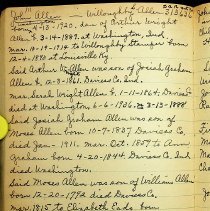 John Allen Willoughby Allen
born 7-13-1920, son of Arthur Wright
Allen b. 3-14-1889, at Washington Ind.
mar. 10-19-1914 to Willoughby Stamper born
12-4-1890 at Louisville Ky.
Said Arthur W. Allen was son of Josiah Graham
Allen b. 12-3-1861, Daviess Co. Ind.
mar. Sarah Wright Allen b. 1-11-1864; Daviess
died at Washington 6-6-1906. 3-13-1888
Said Josiah Graham Allen was son of
Moses Allen born 10-7-1837 Daviess Co.
died Jan- 1911. mar. Oct-1857 to Ann
Graham born 4-20-1844. Daviess Co. Ind
died Washington.
Said Moses Allen was son of William Allen
born 12-20-1792 died Daviess Co.
mar. 1815 to Elizabeth Eads born